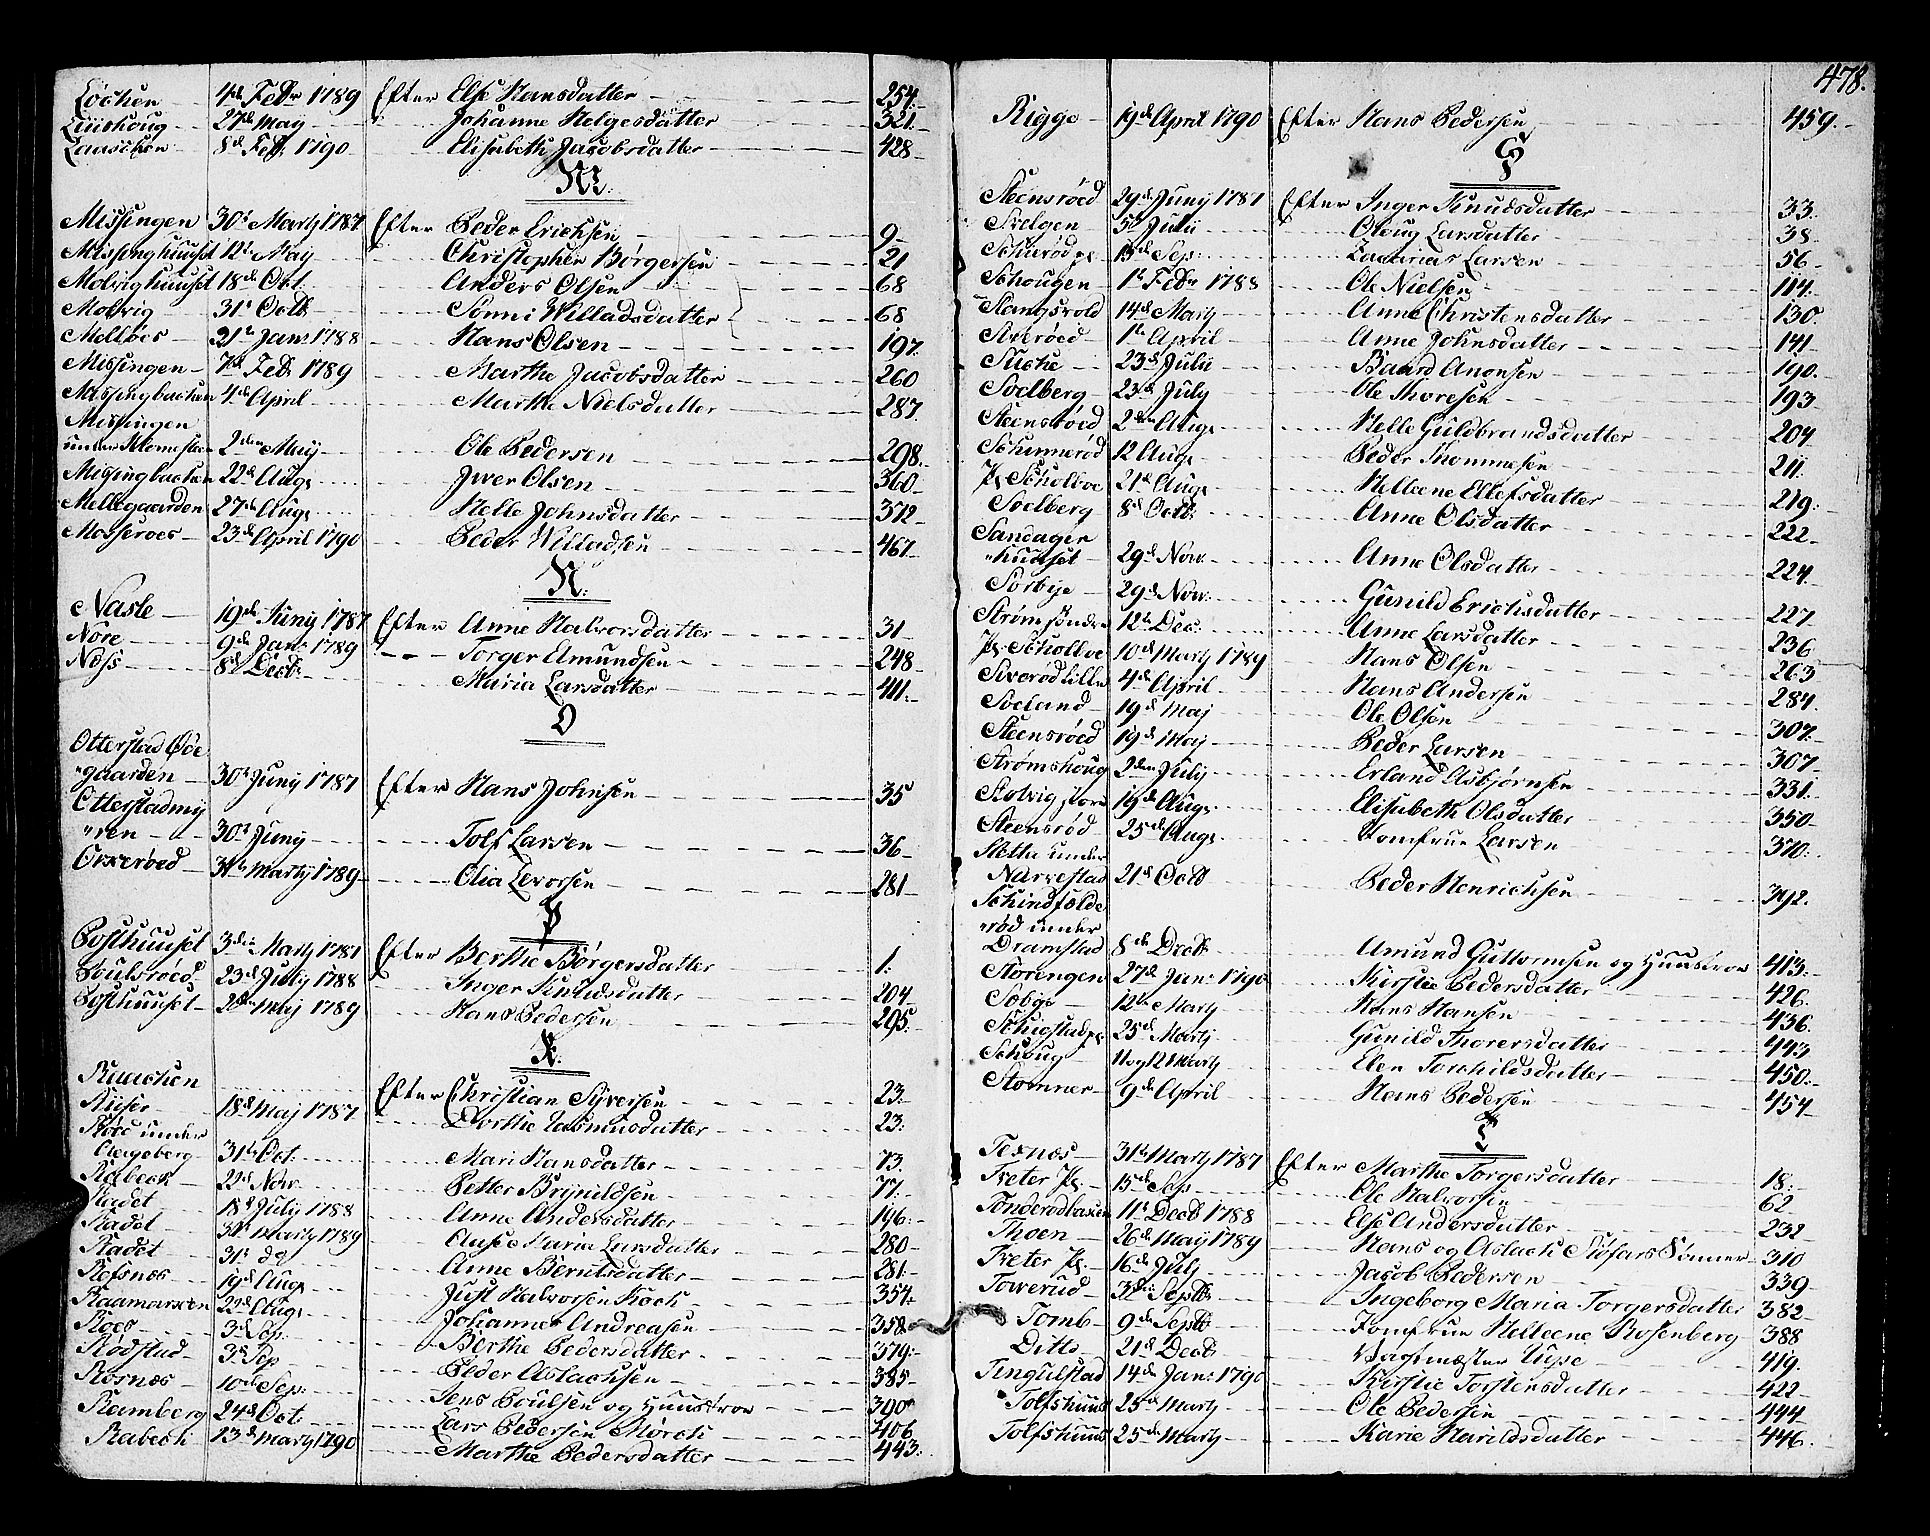 Løchen 4de Febr 1789 Efter Else Hansdatter 254.
Liishoug 27de May Johanne Helgesdatter 321.
Laaschen 8de Feb. 1790 Elisabeth Jacobsdatter 428
M.
Missingen 30te Martÿ 1787 Efter Peder Erichsen 9
Missinghuuset 12te Maÿ Christopher Børgersen 21
Molvighuuset 18de Oct. Anders Olsen 68
Molvig 31te Octb Sønni Willadsdatter 68
Melløes 21te Jan: 1788 Hans Olsen 197.
Missingen 7de Feb. 1789 Marthe Jacobsdatter 260
Missingbachen 4de April Marthe Nielsdatter 287.
Missingen
under Klomesteen 2den Maÿ Ole Pedersen 298.
Missingbachen 22de Aug. Jver Olsen 360
Mellegaarden 27de Aug. Helle Johnsdatter 372
Mosseroes 23de April 1790 Peder Willadsen 467
N.
Nasle 19de Junÿ 1787 Efter Anne Halvorsdatter 31
Nøre 9de Jan: 1789 Torger Amundsen 248
Næss 8de Decb: Maria Larsdatter 411.
O
Otterstad Øde
"gaarden 30te Junÿ 1787 Efter Hans Johnsen 35
Otterstadmÿ
"ren 30te Junÿ Tolf Larsen 36
Orrerøed 31te Martÿ 1789 Olia Levorsen 281
P
Posthuuset 3die Martÿ 1787 Efter Berthe Børgersdatter 1.
Poulsrøed 23de Julÿ 1788 Inger Knudsdatter 204
Posthuuset 2den Maÿ 1789 Hans Pedersen 295.
R.
Ruuchen Efter Christian Sÿversen 23.
Riiser 18de Maj 1787 Dorthe Rasmusdatter 23.
Røed under
Clegeberg 31te Oct. Mari Hansdatter 73.
Rabeck 22de Nov. Petter Brÿnildsen 77.
Radet 18de Julÿ 1788 Anne Andersdatter 196.
Radet 31te Martÿ 1789 Clasée Maria Larsdatter 280
Radet 31te do Anne Berntsdatter 281.
Refsnæs 19de Aug. Just Halvorsen Koch 354.
Raamarsen 22de Aug. Johannes Andreasen 358
Roes 3de Sep. Berthe Pedersdatter 379.
Rødstad 3de Sep Peder Aslachsen 385
Rosnæs 10de Sep. Jens Poulsen og Huustroe 390
Ramberg 24de Oct. Lars Pedersen Mørch 406
Rabech 23de Martÿ 1790 Marthe Pedersdatter 443.
478.
Rigge 19de April 1790 Efter Hans Pedersen 459.
S
Steensrøed 29de Junÿ 1787 Efter Inger Knudsdatter 33.
Svelgen 5te Julii Oloug Larsdatter 38
Schierød pl 15de Sep. Zacarias Larsen 56
Schougen 1te Febr 1788 Ole Nielsen 114.
Stangsvold 14de Martÿ Anne Christensdatter 130.
Sverøed 1te April Anne Johnsdatter 141
Siiche 23de Julii Baard Anonsen 190.
Soelberg 23de Julÿ Ole Thoresen 193
Steensrøed 2den Aug. Helle Guldbrandsdatter 204
Schinnerød 12 Aug. Peder Thommesen 211.
Pl. Scholbve 21de Aug. Helleene Ellefsdatter 219.
Soelberg 8de Octb. Anne Olsdatter 222
Sandager
"huuset 29de Nov. Anne Olsdatter 224.
Sørbÿe 29de Nov. Gunild Erichsdatter 227.
Strømsenden 12te Dec. Anne Larsdatter 236
Pl. Scholbve 10de Martÿ 1789 Hans Olsen 263
Sverød lille 4de April Hans Andersen 284.
Soeland 19de Maj Ole Olsen 307.
Steensrøed 19de Maj Peder Larsen 307.
Strømshoug 2den Julÿ Erland Asbjørnsen 331.
Solvig store 19de Aug. Elisabeth Olsdatter 350
Steensrød 25de Aug. Jomfrue Larsen 370.
Sletta under
Narvestad 21de Octb Peder Henrichsen 392.
Schindfælde
"rød under
Dramstad 8de Decb. Amund Guttormsen og Huustroe 413.
Storengen 27de Jan: 1790 Kirstie Pedersdatter 426.
Søbye 12te Martÿ Hans Hansen 436
Schigstad pl 25de Martÿ Gunild Thoresdatter 443
Schoug 11 og 12 Martÿ Elen Torchildsdatter 450.
Stomner 9de April Hans Pedersen 454
T
Texnæs 31te Martÿ 1787 Efter Marthe Torgersdatter 18.
Treter Pl. 15de Sep Ole Halvorsen 62
Tonderødbachen 11te Decb 1788 Else Andersdatter 232
Thoen 26de Maÿ 1789 Hans og Aslach Stofers Sønner 310
Treter Pl. 16de Julÿ Jacob Pedersen 339
Towerud 3die Septb. Ingeborg Maria Torgersdatter 382
Tomb 9de Septb Jomfrue Helleene Rosenberg 388
Ditto 21de Decb Vagtmæster Lÿse 419.
Tingulstad 14de Jan: 1790 Kirstie Torstensdatter 422
Tolfshuus 25de Martÿ Ole Pedersen 444
Tolfshuus 25de Martÿ Karie Harildsdatter 446.